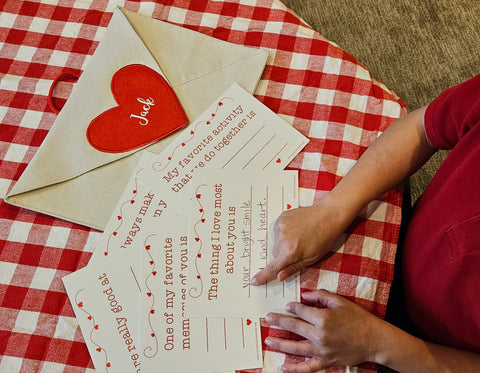 Jack
My favorite activity
that we do together is
my
The thing I love most
about you is
your bright smile
kind heart.
One of my favorite
memories of you is
really good at